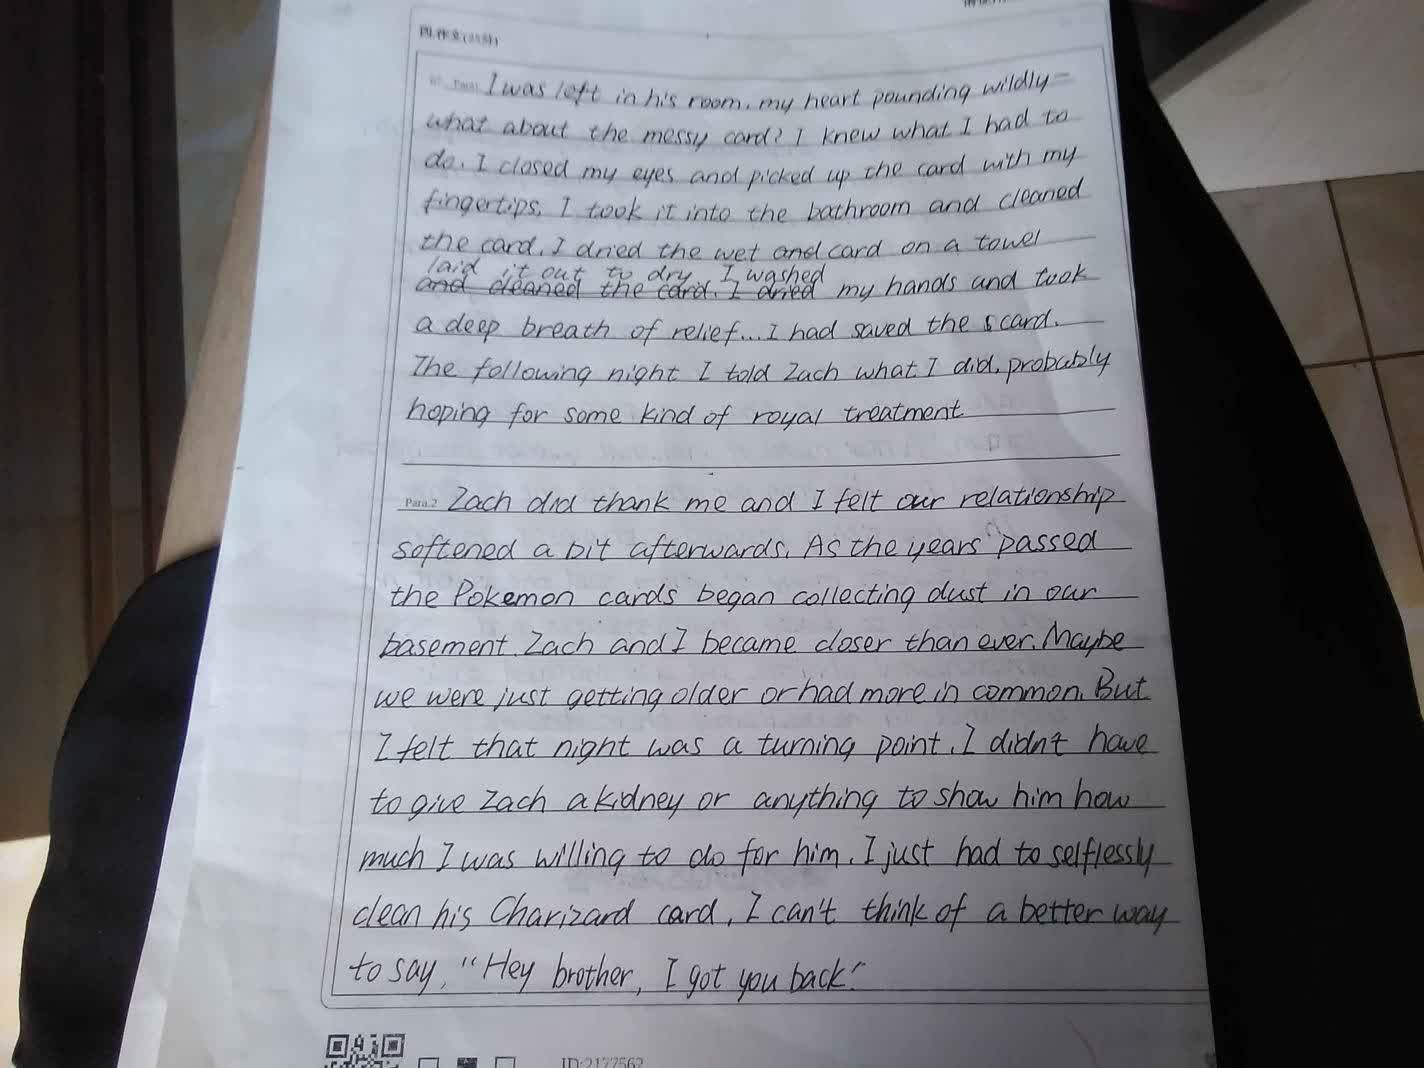 四.作文(25分)
Para.1 I was left in his room, my heart pounding wildly-
what about the messy card? I knew what I had to
do. I closed my eyes and picked up the card with my
fingertips. I took it into the bathroom and cleaned
the card. I dried the wet and card on a towel
laid it out to dry. I washed
and cleaned the card. I dried my hands and took
a deep breath of relief... I had saved the card.
The following night I told Zach what I did, probably
hoping for some kind of royal treatment
Para.2 Zach did thank me and I felt our relationship
softened a bit afterwards. As the years passed
the Pokemon cards began collecting dust in our
basement. Zach and I became closer than ever. Maybe
we were just getting older or had more in common. But
I felt that night was a turning point. I didn't have
to give Zach a kidney or anything to show him how
much I was willing to do for him. I just had to selflessly
clean his Charizard card. I can't think of a better way
to say, "Hey brother, I got you back."
ID:2177562